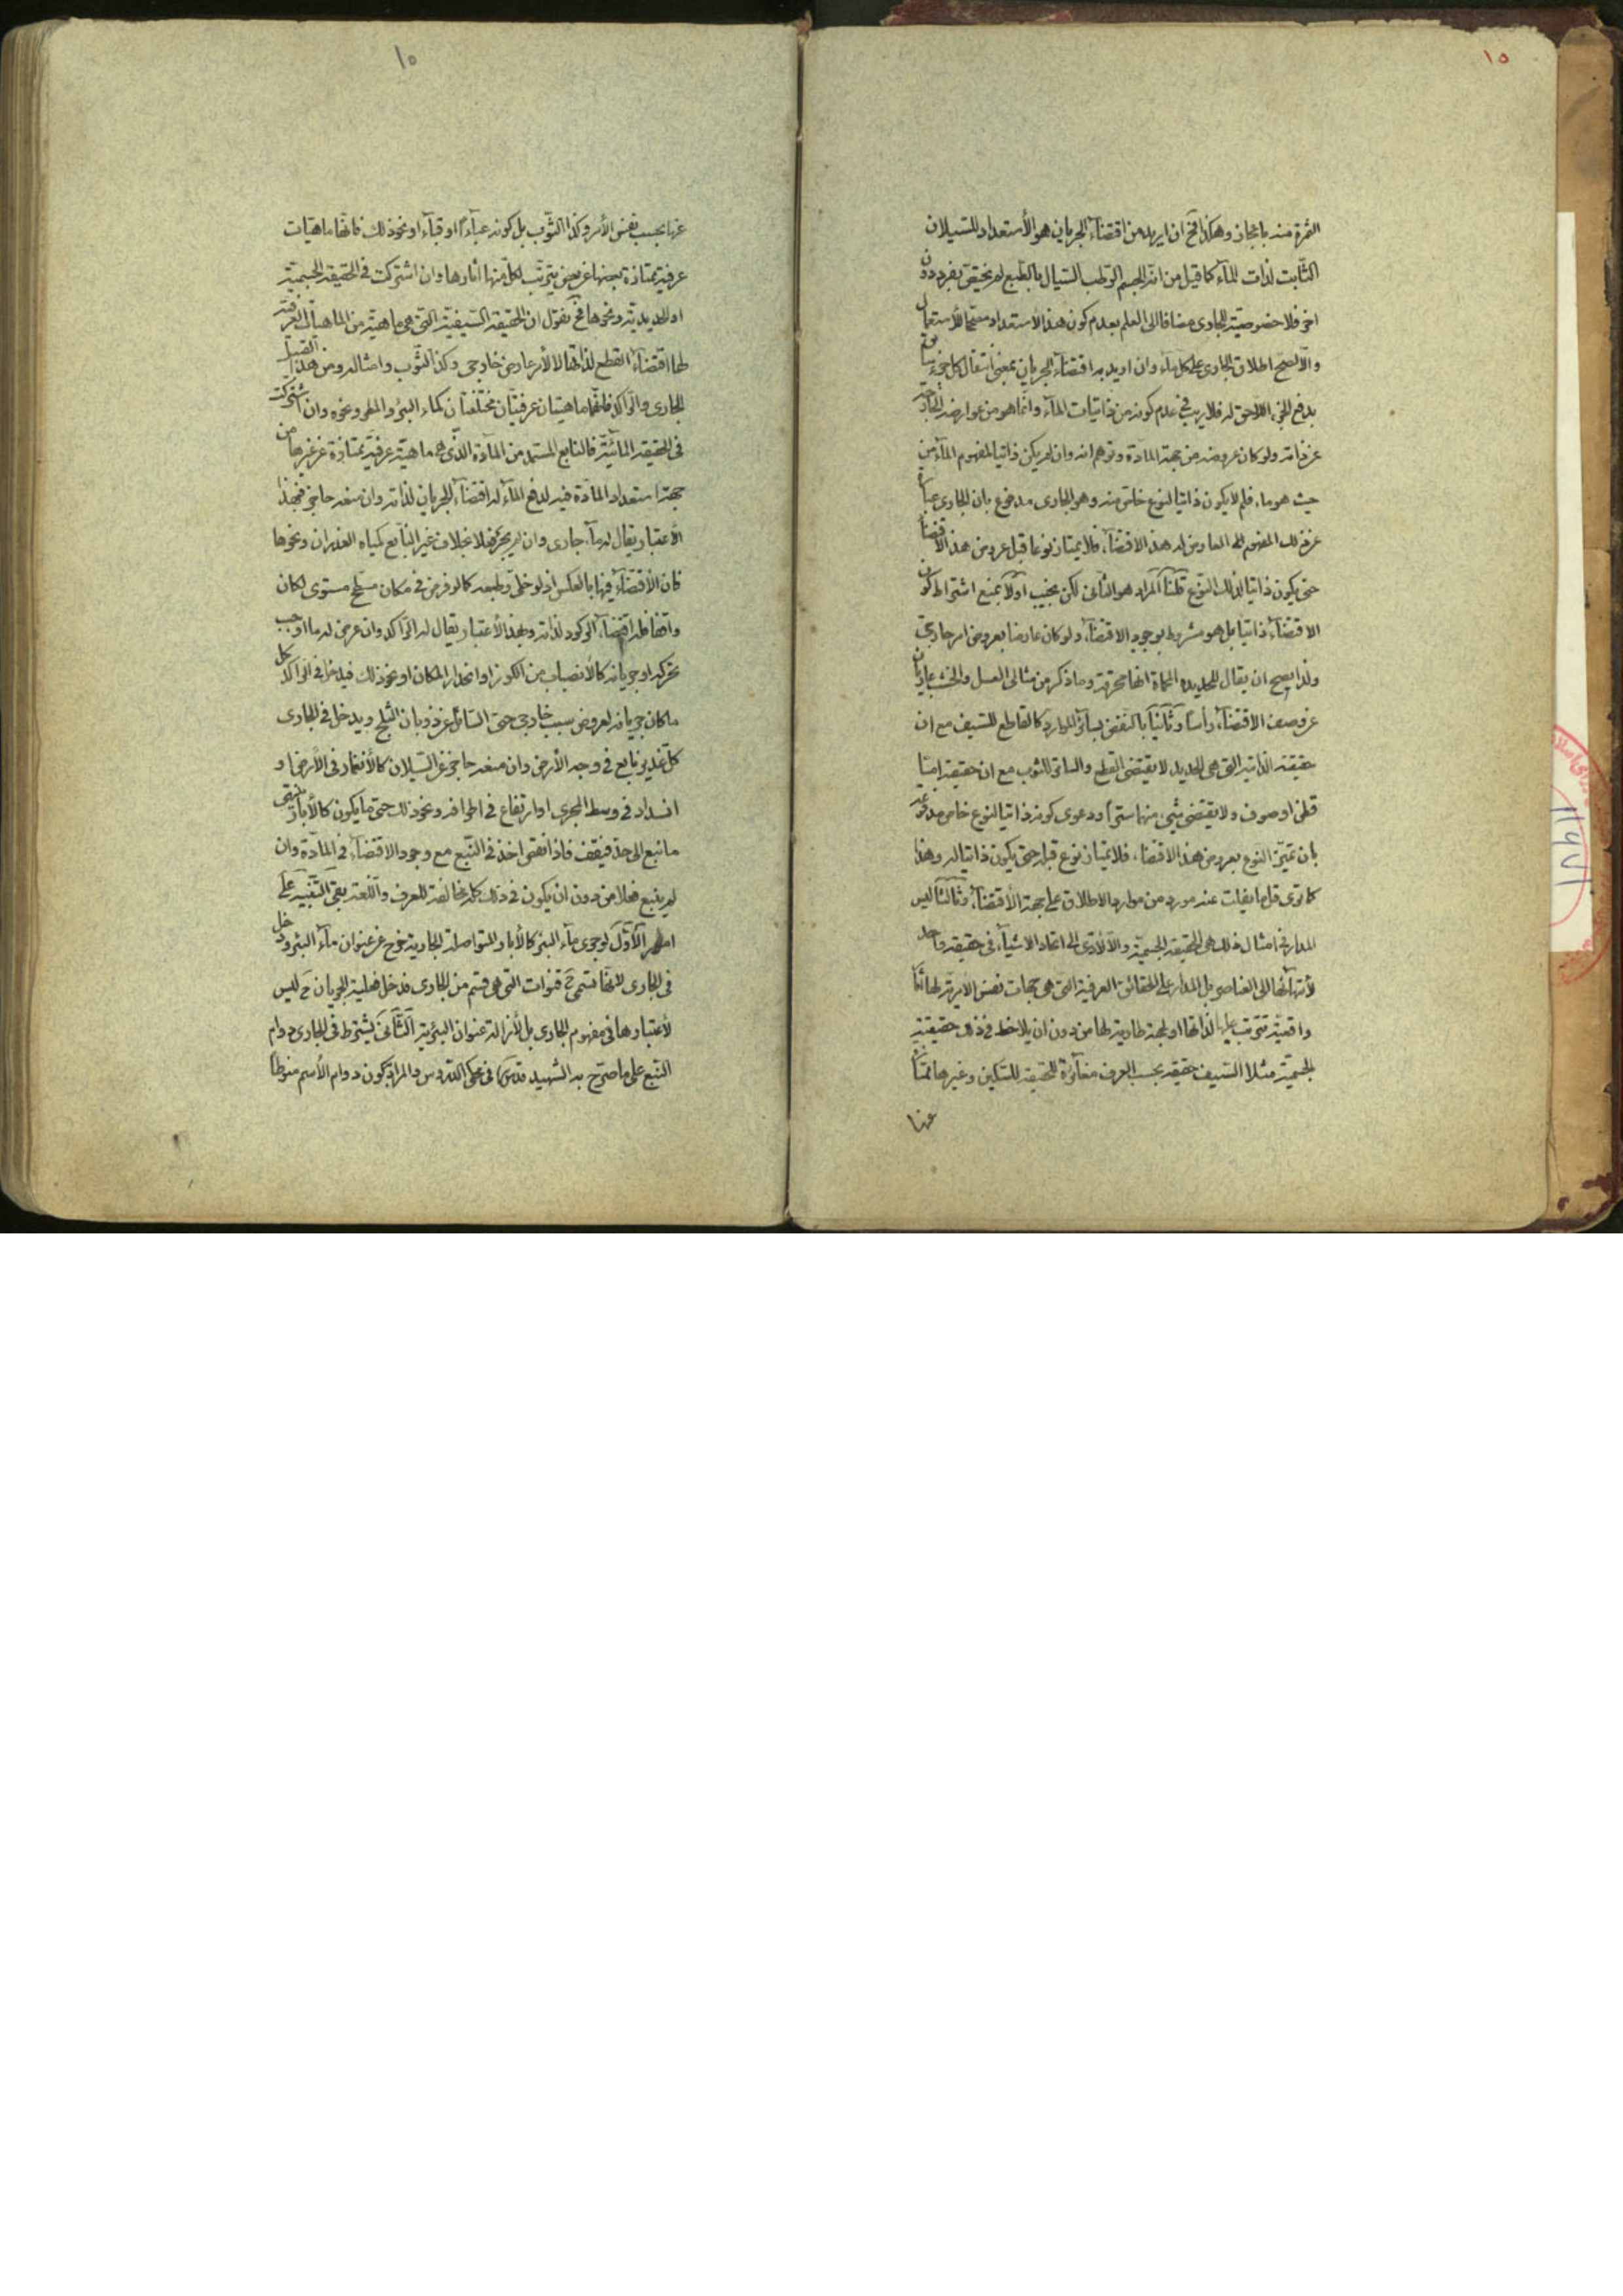 ١٥
الثمرة منه بإعجاز وهكذا فح ان اريد من اقتضاء الجريان هو الأستعداد للسيلان
الثابت لذات الماء كما قيل من انه الجسم الرطب السيال بالطبع لم يختص بفرد دون
اخر فلا خصوصية للجارى مضافا الى العلم بعدم كون هذا الاستعداد مصححا للأستعمال
والا لصح اطلاق الجارى على كل ماء وان اريد به اقتضاء الجريان بمعنى انتقال كل جزء
بدفع الجزء اللاحق له فلا ريب فى عدم كونه من ذاتيات الماء وانما هو من عوارضه
عن ذاته ولو كان عروضه من جهة المادة وتوهم انه وان لم يكن ذاتيا لمفهوم الماء من
حيث هو ماء فلم لا يكون ذاتيا لنوع خاص منه وهو الجارى مدفوع بان الجارى عبارة
عن ذلك المفهوم العارض له هذا الاقتضاء فلا يمتاز نوعا قبل عروض هذا الاقتضاء
حتى يكون ذاتيا لذلك النوع قلنا المراد هو الثانى لكن نجيب اولا بمنع اشتراط كون
الاقتضاء ذاتيا بل هو مشروط بوجود الاقتضاء ولو كان عارضا بعروض امر خارجى
ولذا يصح ان يقال للحديدة المحماة انها محرقة وما ذكر من مثالى العسل والخشب عاريان
عن وصف الاقتضاء رأسا وثانيا بالنقض بسائر الموارد كالقاطع للسيف مع ان
حقيقته الذاتية التى هى الحديد لا يقتضى القطع والساتر للثوب مع ان حقيقته اما
قطن او صوف ولا يقتضى شىء منها سترا ودعوى كونه ذاتيا لنوع خاص مدفوعة
بان تميز النوع بعروض هذا الاقتضاء فلا يمتاز نوع قبله حتى يكون ذاتيا له وهذا
كما ترى قل ما يفلت عنه مورد من موارد الاطلاق على جهة الأقتضاء وثالثا ليس
المدار فى امثال ذلك هى الحقيقة الجسمية والا لأدى الى اتحاد الاشياء فى حقيقة واحدة
لأنتهائها الى العناصر بل المدار على الحقائق العرفية التى هى جهات نفس الأمرية لها اثار
واقعية تترتب عليها لذاتها او لجهة طارية لها من دون ان يلاحظ فى ذلك حقيقته
الجسمية مثلا السيف حقيقة بحسب العرف مغائرة للحقيقة للسكين وغيرها ممتازة
عنها
١٥
عنها بحسب نفس الأمر وكذا الثوب بل كونه عباءا او قباء او نحو ذلك فانها ماهيات
عرفية ممتازة بعضها عن بعض يترتب لكل منها اثارها وان اشتركت فى الحقيقة الجسمية
او الحديدية ونحوها فح نقول ان الحقيقة السيفية التى هى ماهية من الماهيات العرفية
لها اقتضاء القطع لذاتها لا لأمر عارضى خارجى وكذا الثوب وامثاله ومن هذا القبيل
الجارى والراكد فانهما ماهيتان عرفيتان مختلفتان كماء البئر والمطر وغيره وان اشتركت
فى الحقيقة المائية فالنابع المستمد من المادة الذى هو ماهية عرفية ممتازة عن غيرها من
جهة استعداد المادة فيه لدفع الماء له اقتضاء الجريان لذاته وان منعه حاجز فبهذا
الأعتبار يقال له ماء جارى وان لم يجر فعلا بخلاف غير النابع كمياه الغدران ونحوها
فان الأقتضاء فيها بالعكس اذ لو خلى وطبعه كما لو فرض فى مكان مسطح مستوى لكان
واقفا فله اقتضاء الركود لذاته وبهذا الأعتبار يقال له الراكد وان عرض له ما اوجب
تحركه او جريانه كالأنصباب من الكوز او انحدار المكان او نحو ذلك فيدخل فى الراكد كل
ما كان جريانه لعروض سبب خارجى حتى السائل عن ذوبان الثلج ويدخل فى الجارى
كل غدير نابع فى وجه الأرض وان منعه حاجز عن السيلان كالأنغمار فى الأرض او
انسداد فى وسط المجرى او ارتفاع فى اطرافه ونحو ذلك حتى ما يكون كالأبار
ما نبع الى حد فيقف فاذا نقص اخذ فى النبع مع وجود الاقتضاء فى المادة وان
لم ينبع فعلا من دون ان يكون فى ذلك كله مخالفة للعرف واللغة بقى التنبيه على
امور الأول لو جرى ماء البئر كالأبار المتواصلة الجارية خرج عن عنوان ماء البئر ودخل
فى الجارى لانها تسمى ح قنوات التى هى قسم من الجارى فدخل فعلية الجريان ح ليس
لأعتبارها فى مفهوم الجارى بل لأزالة عنوان البئرية الثانى يشترط فى الجارى دوام
النبع على ما صرح به الشهيد قدس فى محكى الدروس والمراد كون دوام الأسم منوطا